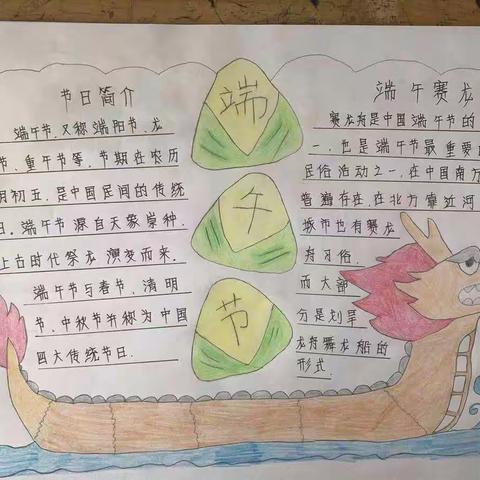 节日简介
端午节,又称端阳节、龙
节、重午节等,节期在农历
月初五,是中国民间的传统
日。端午节源自天象崇
上古时代祭龙演变而来.
端午节与春节、清明
节、中秋节并称为中国
四大传统节日.
端
午
节
端午赛龙
赛龙舟是中国端午节的
一,也是端午节最重要的
民俗活动之一,在中国南方
普遍存在,在北方靠近河
城市也有赛龙
舟习俗.
而大部
分是划旱
龙舟舞龙船的
形式.